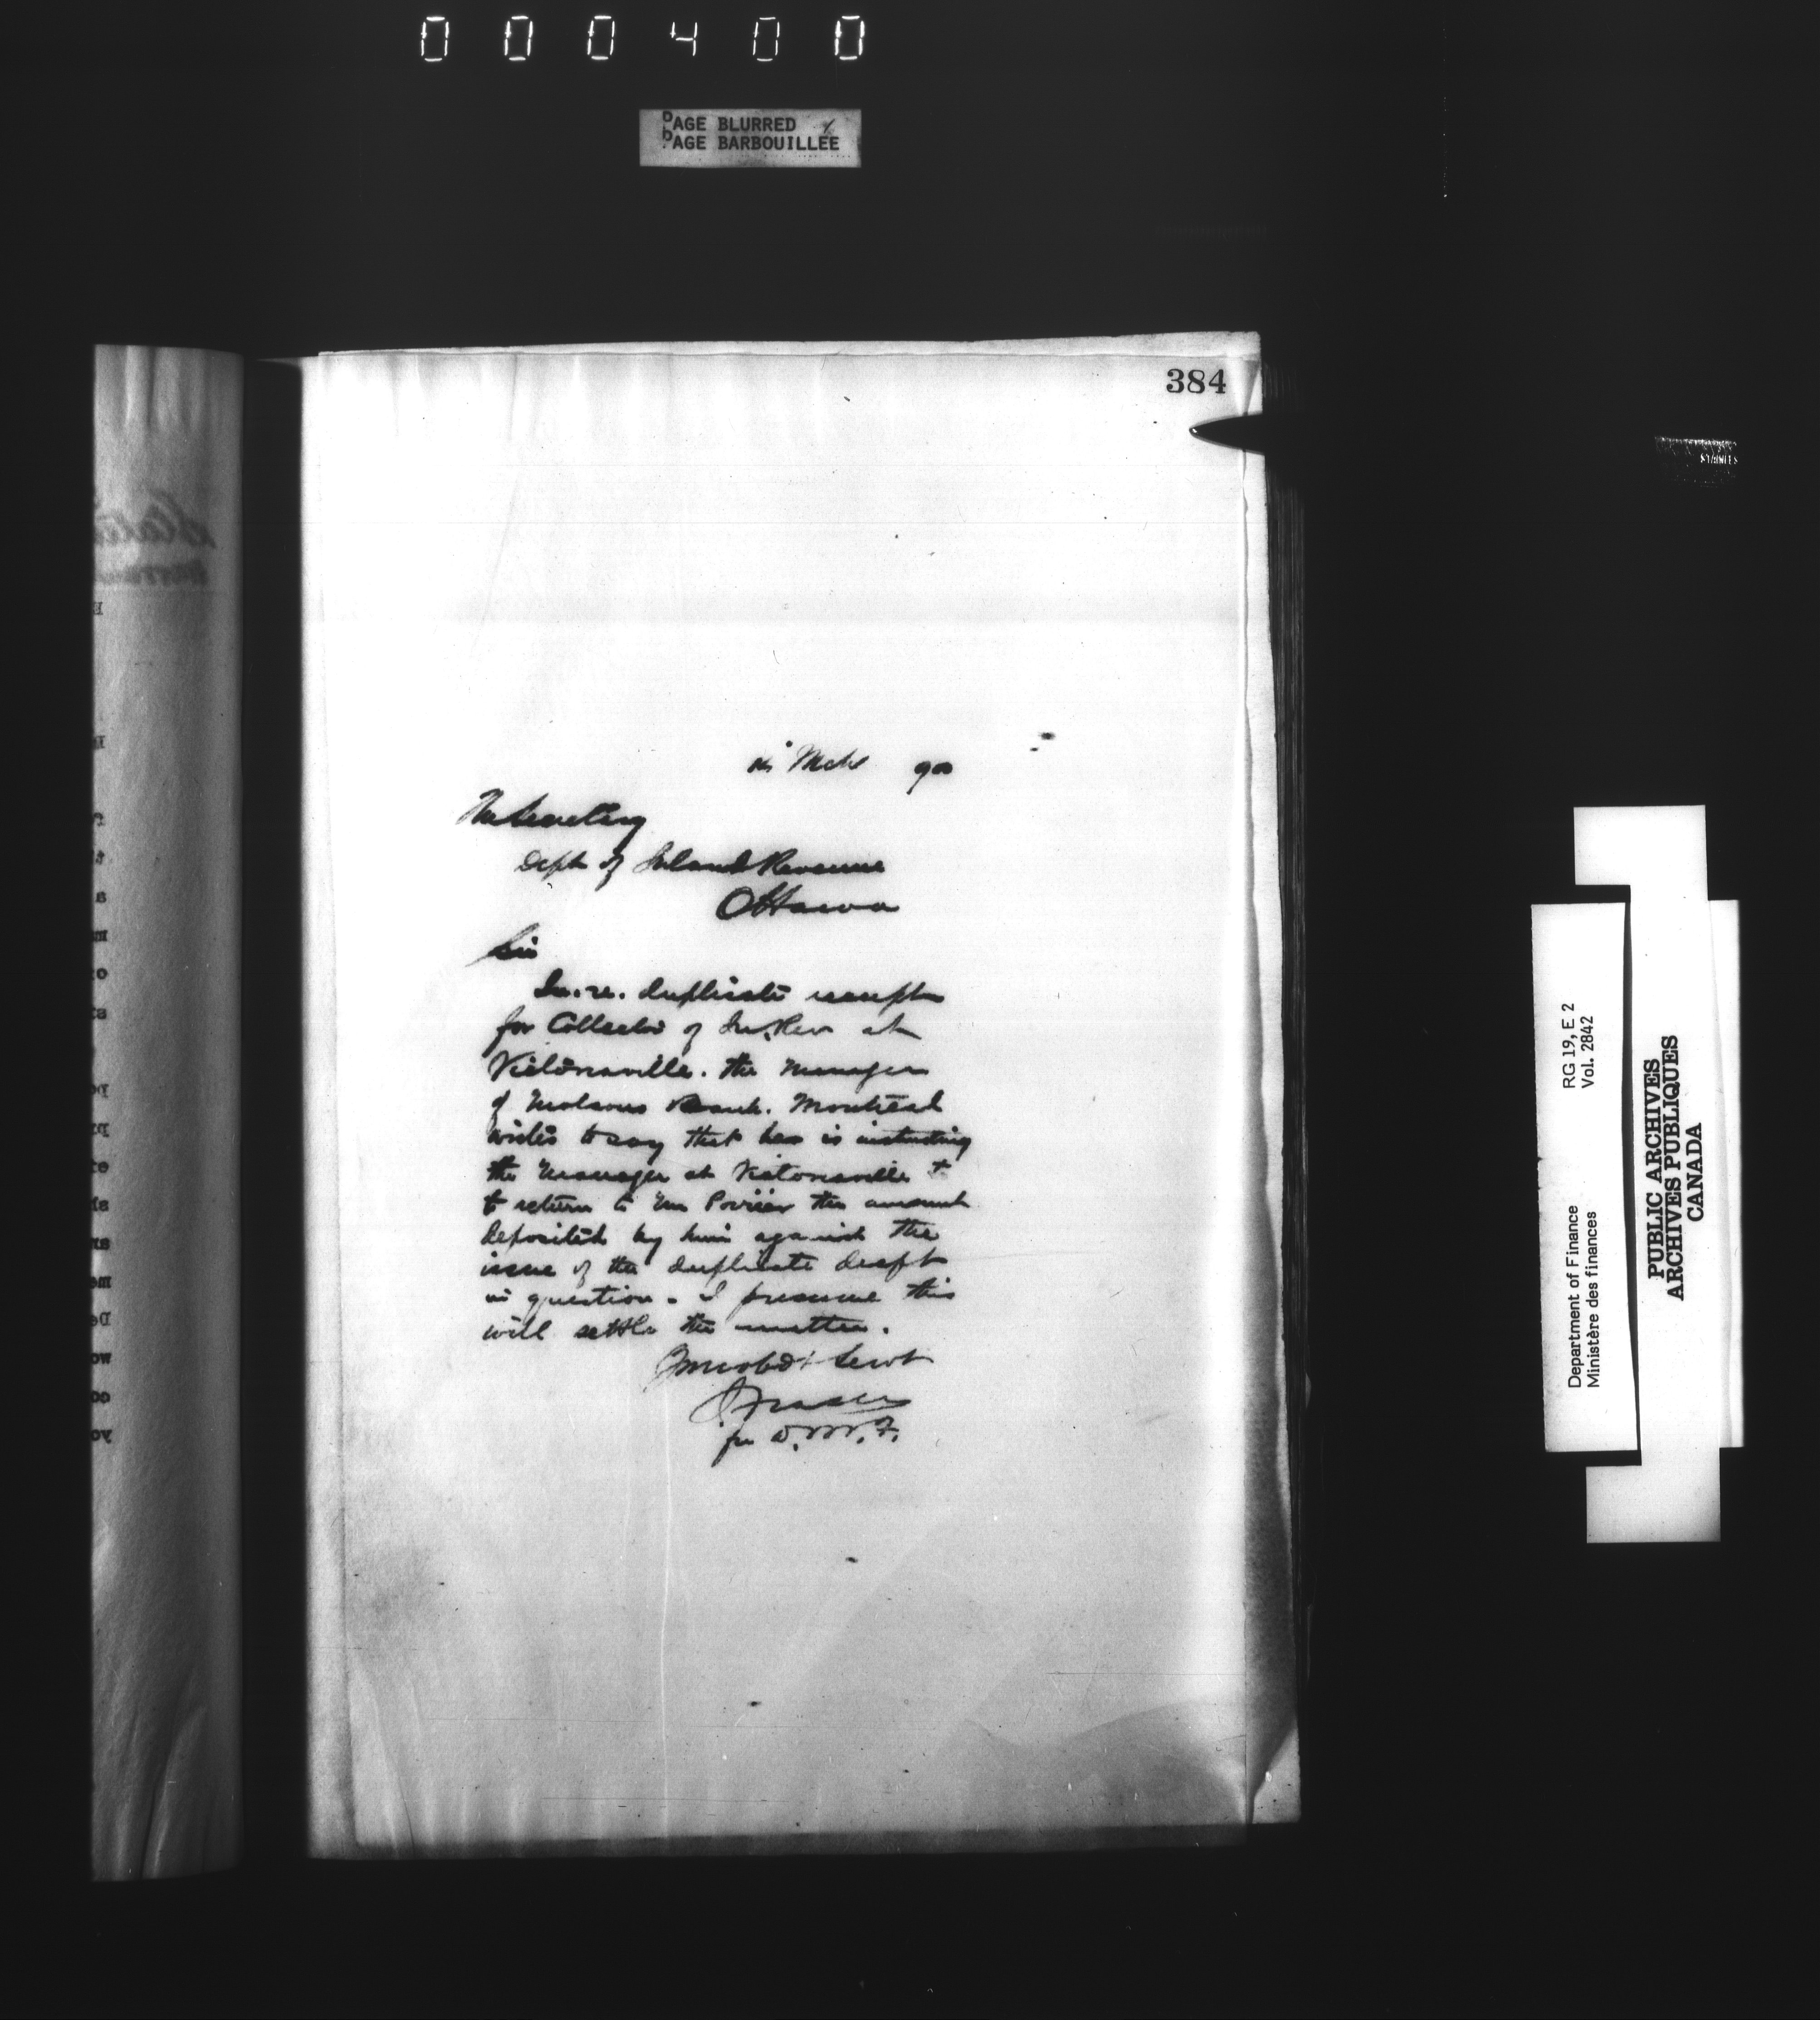 000400
PAGE BLURRED
PAGE BARBOUILLÉE
384
Mch 900
The Secretary
Dept of Inland Revenue
Ottawa
Sir
In. re. duplicate receipt
for Collector of In. Rev at
Victoriaville. the Manager
of Molsons Bank. Montreal
writes to say that he is instructing
the Manager at Victoriaville
to return to Mr Poirier the amount
deposited by him against the
issue of the duplicate draft
in question. I presume this
will settle the matter.
Servt
Fraser
for D. M. F.
Department of Finance RG 19, E 2
Ministère des finances Vol. 2842
PUBLIC ARCHIVES
ARCHIVES PUBLIQUES
CANADA